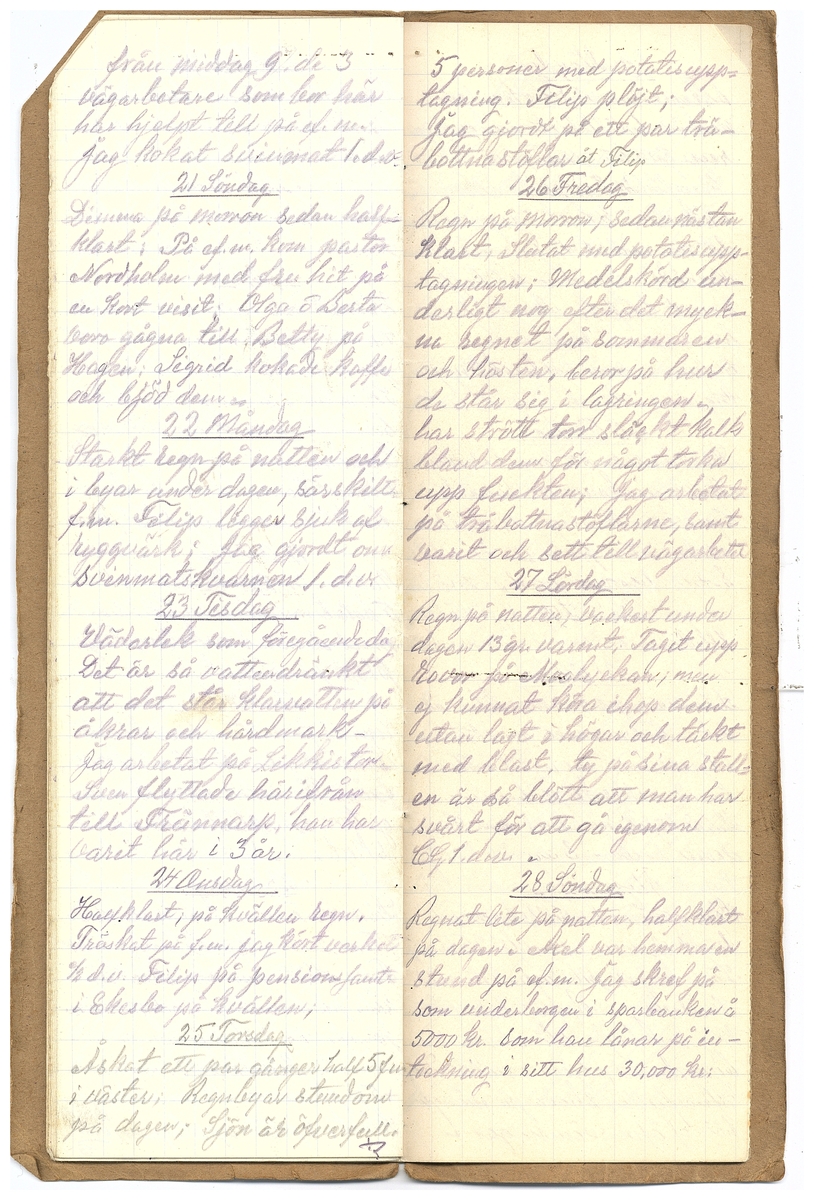 från middag 9. de 3
vägarbetare som bor här
har hjelpt till på ef. m.
Jag kokat svinmat 1. d.v.
21 Söndag
Dimma på morron sedan half-
klart; På ef.m. kom pastor
Nordholm med fru hit på
en kort visit; Olga o Berta
voro gågna till Betty på
Hagen; Sigrid kokade kaffe
och bjöd dem
22 Måndag
Starkt regn på natten och
i byar under dagen, särskilt
f.m. Filip ligger sjuk af
ryggvärk; Jag gjordt om
svinmatskvarnen 1. d.v.
23 Tisdag
Väderlek som föregående dag
Det är så vattendränkt
att det står klarvatten på
åkrar och hårdmark-
Jag arbetat på Likkistor.
Sven flyttade härifrån
till Trännarp, han har
varit här i 3 år.
24 Onsdag
Halfklart, på kvällen regn.
Tröskat på f.m. jag kört verket
½ d.v. Filip på pension samt
i Ekesbo på kvällen;
25 Torsdag
Åskat ett par gånger half 5 fm
i väster; Regnbyar stundom
på dagen; Sjön är öfverfull.
5 personer med potatisupp-
tagning. Filip plöjt;
Jag gjort på ett par trä-
bottnastöflar åt Filip
26 Fredag
Regn på morron; sedan nästan
klart, Slutat med potatisupp-
tagningen; Medelskörd un-
derligt nog efter det myck-
na regnet på sommaren
och hösten, beror på hur
de står sig i lagringen.
har strött torr släckt kalk
bland dem för något torka
upp fuckten; Jag arbetat
på träbottnastöflarne, samt
varit och sett till vägarbetet
27 Lördag
Regn på natten, vackert under
dagen 13 gr. varmt. Taget upp
rovor på lyckan; men
ej kunnat köra ihop dem
utan lagt i högar och täckt
med blast, ty på sina ställ-
en är så blött att man har
svårt för att gå igenom
1. d.v.
28 Söndag
Regnat lite på natten, halfklart
på dagen. Axel var hemma en
stund på ef.m. Jag skref på
som underborgen i sparbanken å
5000 kr. som han lånar på in-
teckning i sitt hus 30,000 kr.